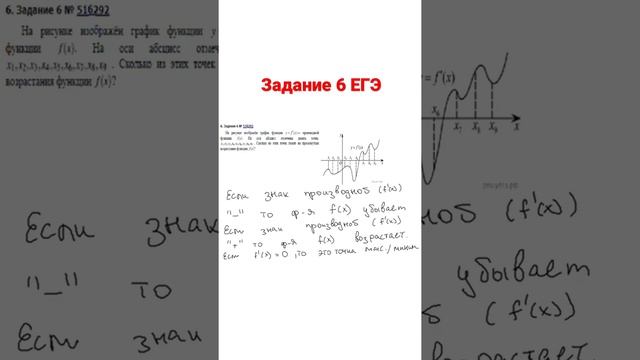 6. Задание 6 № 516292
На рисунке изображён график функции y
функции f(x). На оси абсцисс отме
x₁,x₂,x₃,x₄,x₅,x₆,x₇,x₈,x₉ . Сколько из этих точек
возрастания функции f(x)?
Задание 6 ЕГЭ
6. Задание 6 № 516292
На рисунке изображён график функции y = f'(x) — производной
функции f(x). На оси абсцисс отмечены девять точек:
x₁,x₂,x₃,x₄,x₅,x₆,x₇,x₈,x₉ . Сколько из этих точек лежит на промежутках
возрастания функции f(x)?
y = f'(x)
Если знак производной (f'(x))
"–" то ф-я f(x) убывает
Если знак производной (f'(x))
"+" то ф-я f(x) возрастает.
Если f'(x) = 0, то это точка макс./миним
= f'(x)
x₆
x₇
x₈
x₉
Если знак
"–" то
Если знак
ной (f'(x))
убывает
(f'(x))